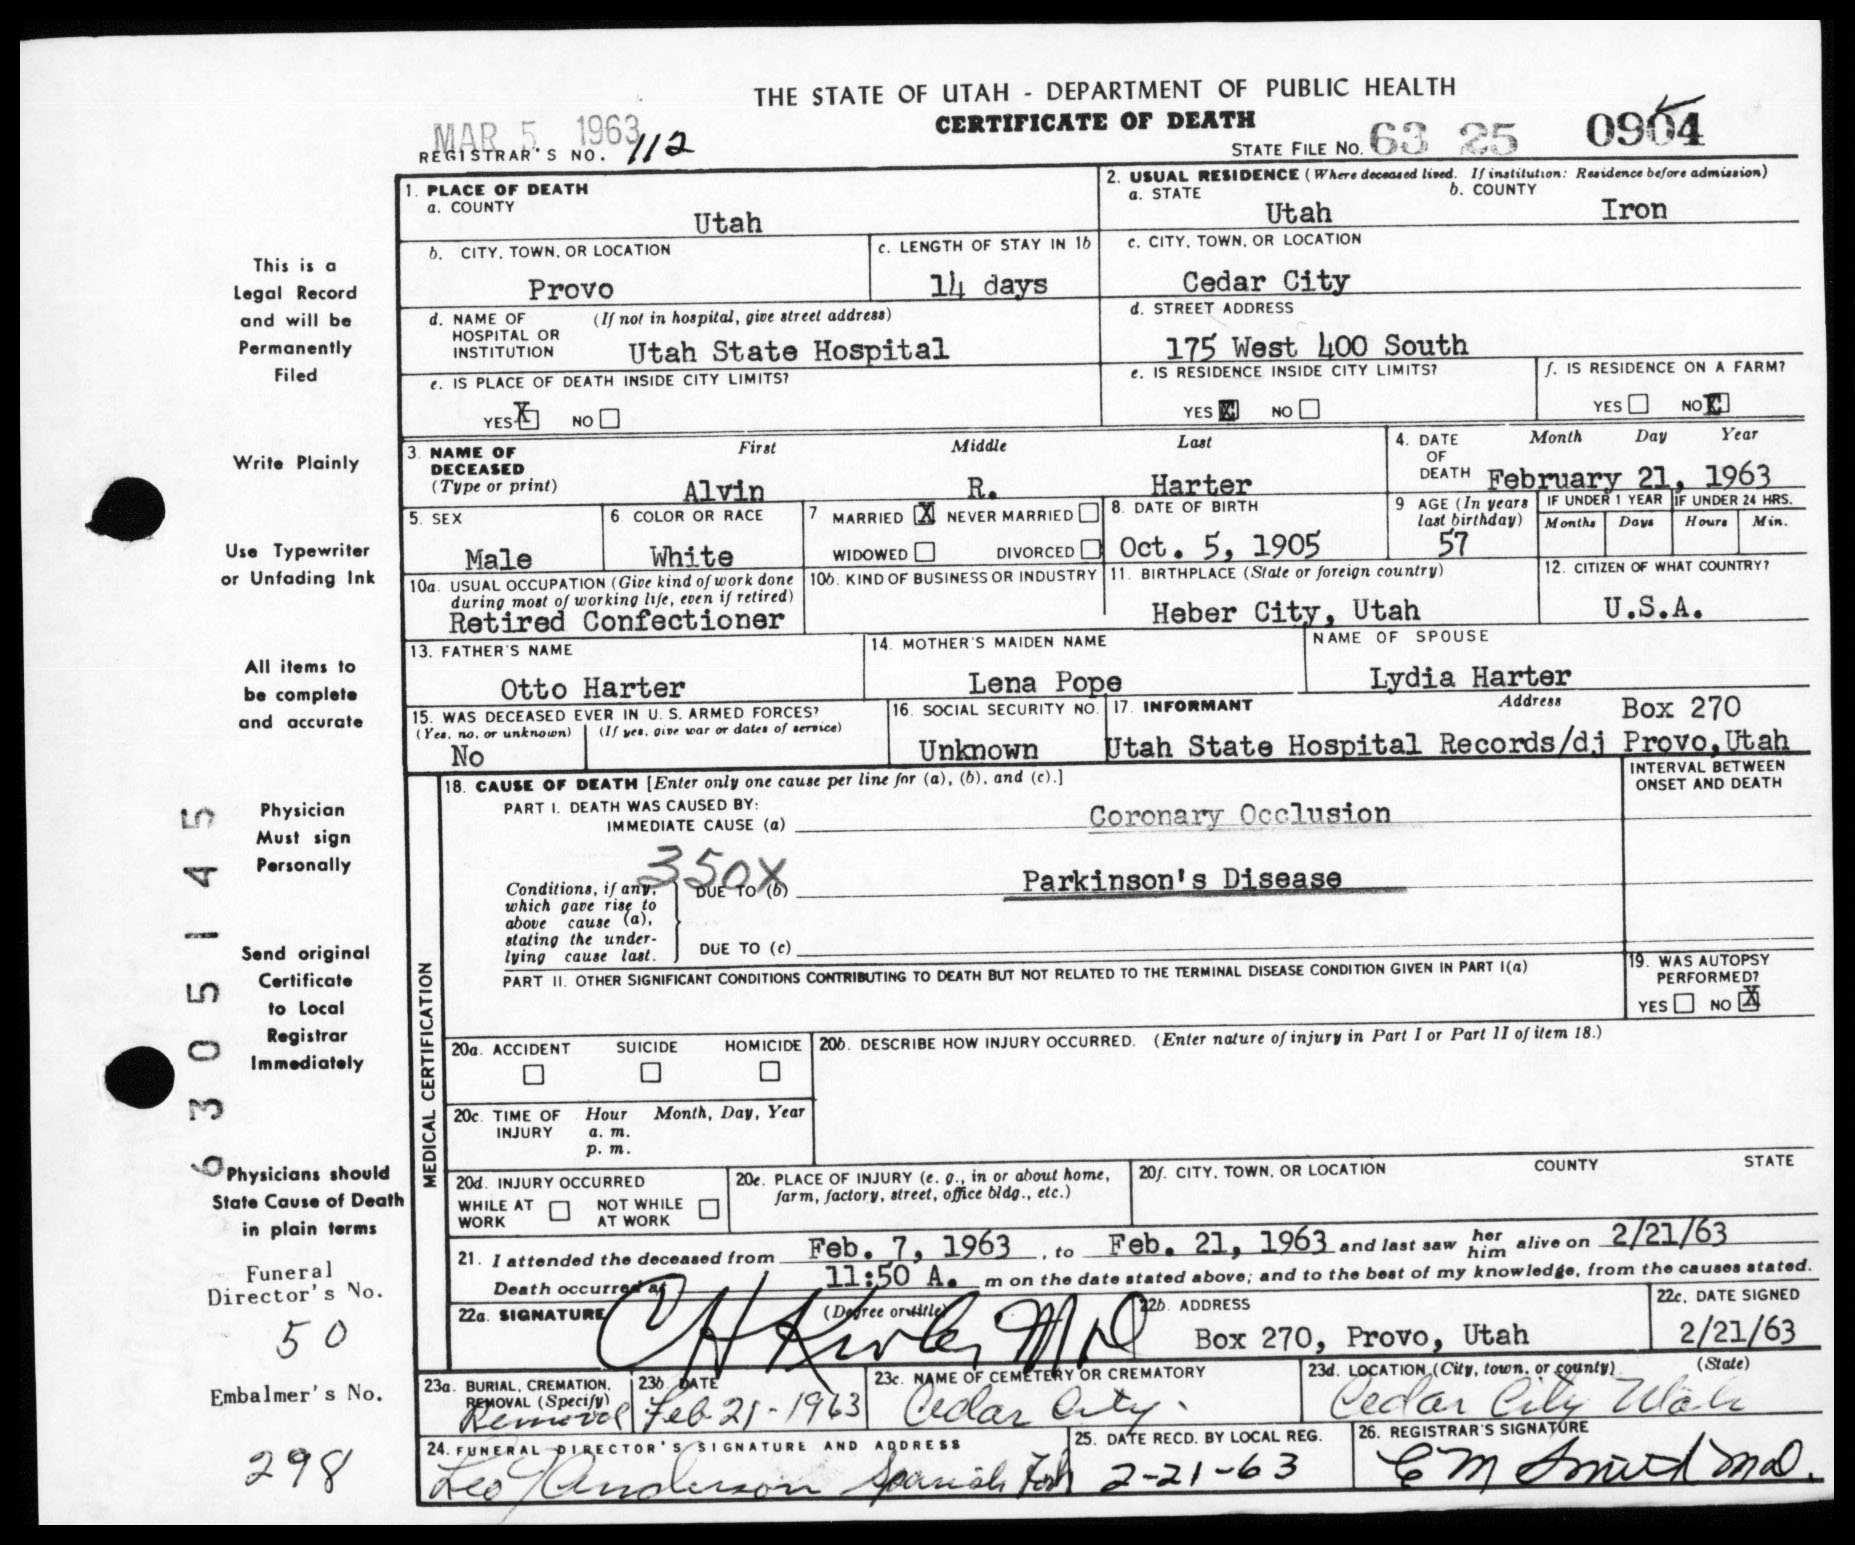 THE STATE OF UTAH - DEPARTMENT OF PUBLIC HEALTH
CERTIFICATE OF DEATH
MAR 5 1963
REGISTRAR'S NO. 112
STATE FILE NO. 63 25 0904
1. PLACE OF DEATH
a. COUNTY
Utah
2. USUAL RESIDENCE (Where deceased lived. If institution: Residence before admission)
a. STATE b. COUNTY
Utah Iron
b. CITY, TOWN, OR LOCATION
Provo
c. LENGTH OF STAY IN 1b
14 days
c. CITY, TOWN, OR LOCATION
Cedar City
d. NAME OF HOSPITAL OR INSTITUTION (If not in hospital, give street address)
Utah State Hospital
d. STREET ADDRESS
175 West 400 South
e. IS PLACE OF DEATH INSIDE CITY LIMITS?
YES X NO
e. IS RESIDENCE INSIDE CITY LIMITS?
YES X NO
f. IS RESIDENCE ON A FARM?
YES NO X
3. NAME OF DECEASED (Type or print)
First Middle Last
Alvin R. Harter
4. DATE OF DEATH
Month Day Year
February 21, 1963
5. SEX
Male
6 COLOR OR RACE
White
7 MARRIED X NEVER MARRIED
WIDOWED DIVORCED
8. DATE OF BIRTH
Oct. 5, 1905
9 AGE (In years last birthday)
57
IF UNDER 1 YEAR IF UNDER 24 HRS.
Months Days Hours Min.
10a. USUAL OCCUPATION (Give kind of work done
during most of working life, even if retired)
Retired Confectioner
10b. KIND OF BUSINESS OR INDUSTRY
11. BIRTHPLACE (State or foreign country)
Heber City, Utah
12. CITIZEN OF WHAT COUNTRY?
U.S.A.
13. FATHER'S NAME
Otto Harter
14. MOTHER'S MAIDEN NAME
Lena Pope
NAME OF SPOUSE
Lydia Harter
15. WAS DECEASED EVER IN U. S. ARMED FORCES?
(Yes, no, or unknown) (If yes, give war or dates of service)
No
16. SOCIAL SECURITY NO.
Unknown
17. INFORMANT Address
Box 270
Utah State Hospital Records/dj Provo, Utah
18. CAUSE OF DEATH [Enter only one cause per line for (a), (b), and (c).]
INTERVAL BETWEEN
ONSET AND DEATH
PART I. DEATH WAS CAUSED BY:
IMMEDIATE CAUSE (a) Coronary Occlusion
350X
Conditions, if any,
which gave rise to
above cause (a),
stating the under-
lying cause last.
DUE TO (b) Parkinson's Disease
DUE TO (c)
PART II. OTHER SIGNIFICANT CONDITIONS CONTRIBUTING TO DEATH BUT NOT RELATED TO THE TERMINAL DISEASE CONDITION GIVEN IN PART I(a)
19. WAS AUTOPSY
PERFORMED?
YES NO X
MEDICAL CERTIFICATION
20a. ACCIDENT SUICIDE HOMICIDE
20b. DESCRIBE HOW INJURY OCCURRED. (Enter nature of injury in Part I or Part II of item 18.)
20c. TIME OF INJURY Hour Month, Day, Year
a. m.
p. m.
20d. INJURY OCCURRED
WHILE AT WORK NOT WHILE AT WORK
20e. PLACE OF INJURY (e. g., in or about home,
farm, factory, street, office bldg., etc.)
20f. CITY, TOWN, OR LOCATION COUNTY STATE
21. I attended the deceased from Feb. 7, 1963, to Feb. 21, 1963 and last saw her him alive on 2/21/63
Death occurred at 11:50 A. m on the date stated above; and to the best of my knowledge, from the causes stated.
22a. SIGNATURE (Degree or title)
C H M D
22b. ADDRESS
Box 270, Provo, Utah
22c. DATE SIGNED
2/21/63
23a. BURIAL, CREMATION,
REMOVAL (Specify)
Removal
23b. DATE
Feb 21-1963
23c. NAME OF CEMETERY OR CREMATORY
Cedar City.
23d. LOCATION (City, town, or county) (State)
Cedar City Utah
24. FUNERAL DIRECTOR'S SIGNATURE AND ADDRESS
Leo Anderson Spanish Fork
25. DATE RECD. BY LOCAL REG.
2-21-63
26. REGISTRAR'S SIGNATURE
E M Smith M.D.
This is a
Legal Record
and will be
Permanently
Filed
Write Plainly
Use Typewriter
or Unfading Ink
All items to
be complete
and accurate
Physician
Must sign
Personally
Send original
Certificate
to Local
Registrar
Immediately
Physicians should
State Cause of Death
in plain terms
Funeral
Director's No.
50
Embalmer's No.
298
6305145